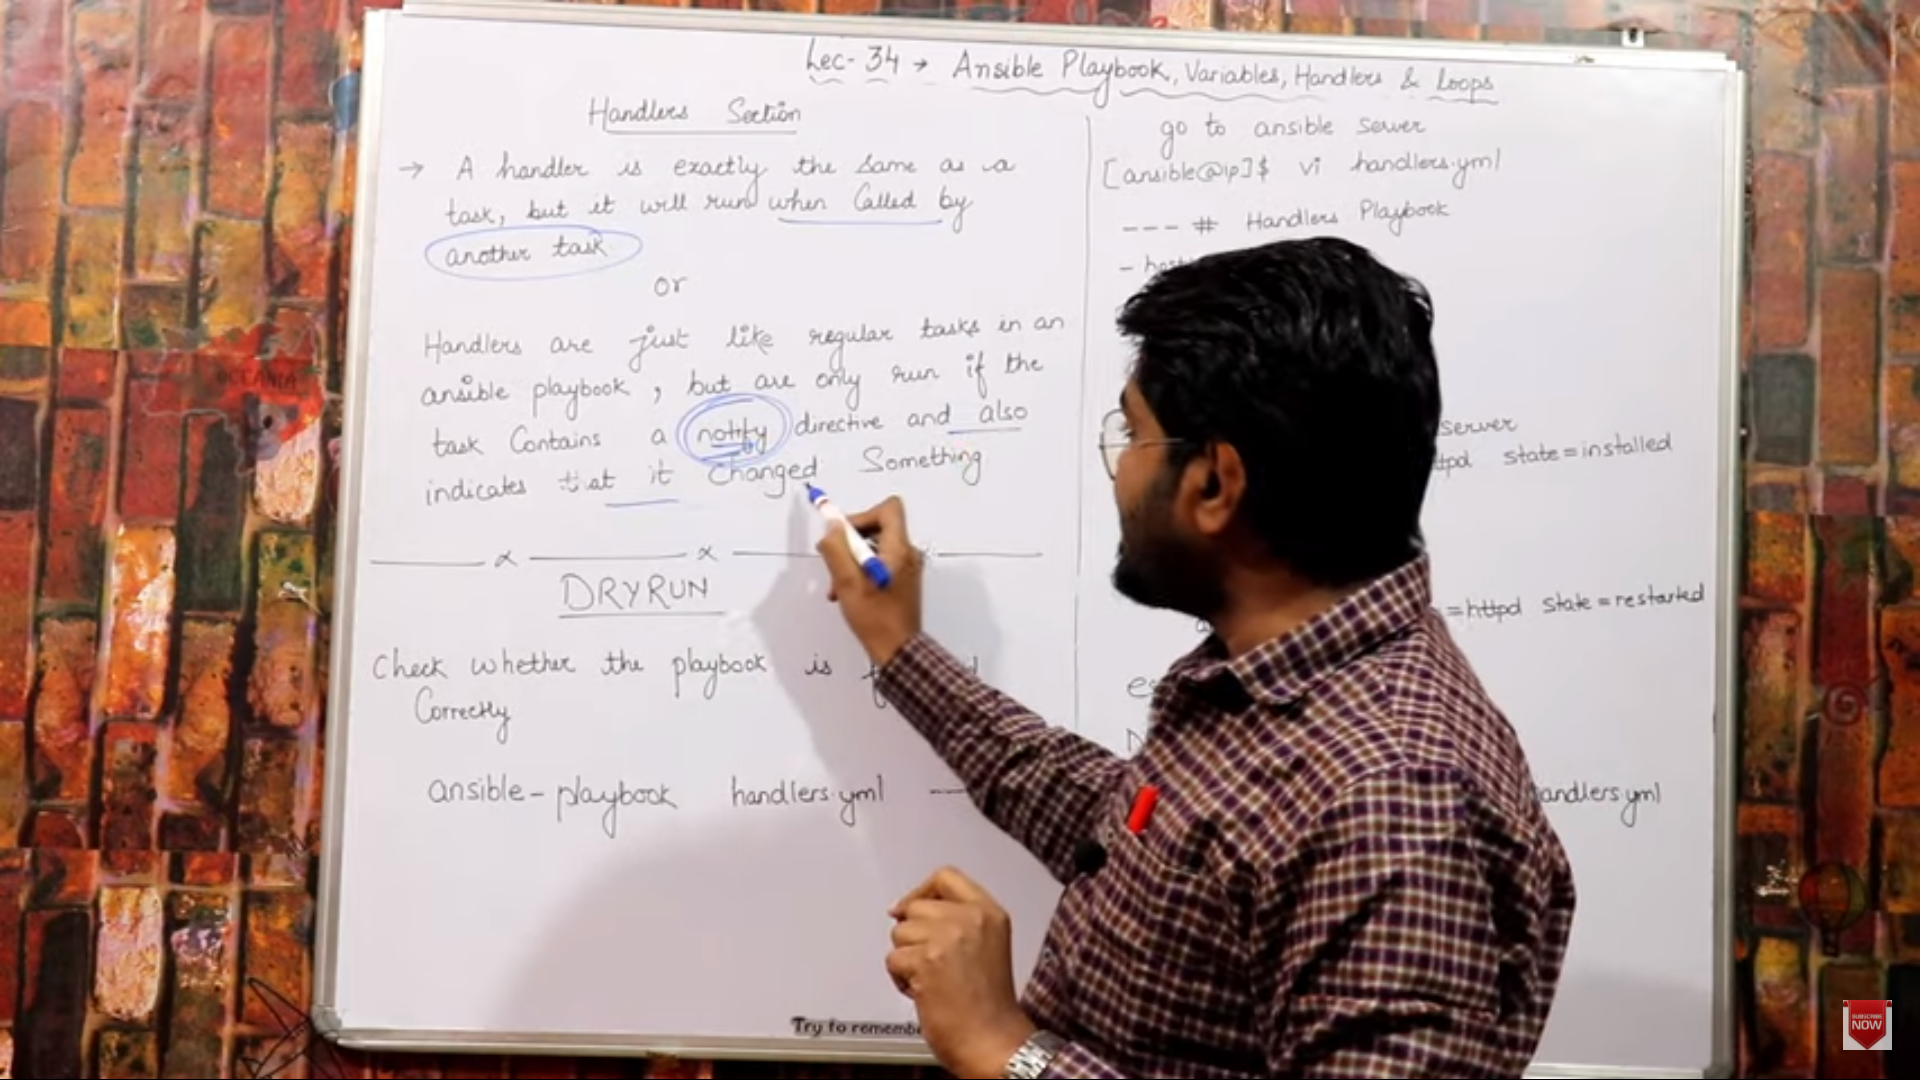 Lec-34 → Ansible Playbook, Variables, Handlers & Loops
Handlers Section
→ A handler is exactly the same as a
task, but it will run when Called by
another task
or
Handlers are just like regular tasks in an
ansible playbook, but are only run if the
task Contains a notify directive and also
indicates that it changed Something
DRYRUN
Check whether the playbook is
Correctly
ansible-playbook handlers.yml --
Try to remembe
go to ansible server
[ansible@ip]$ vi handlers.yml
--- # Handlers Playbook
- hos
server
tpd state=installed
=httpd state=restarted
andlers.yml
OCEANIA
SUBSCRIBE
NOW